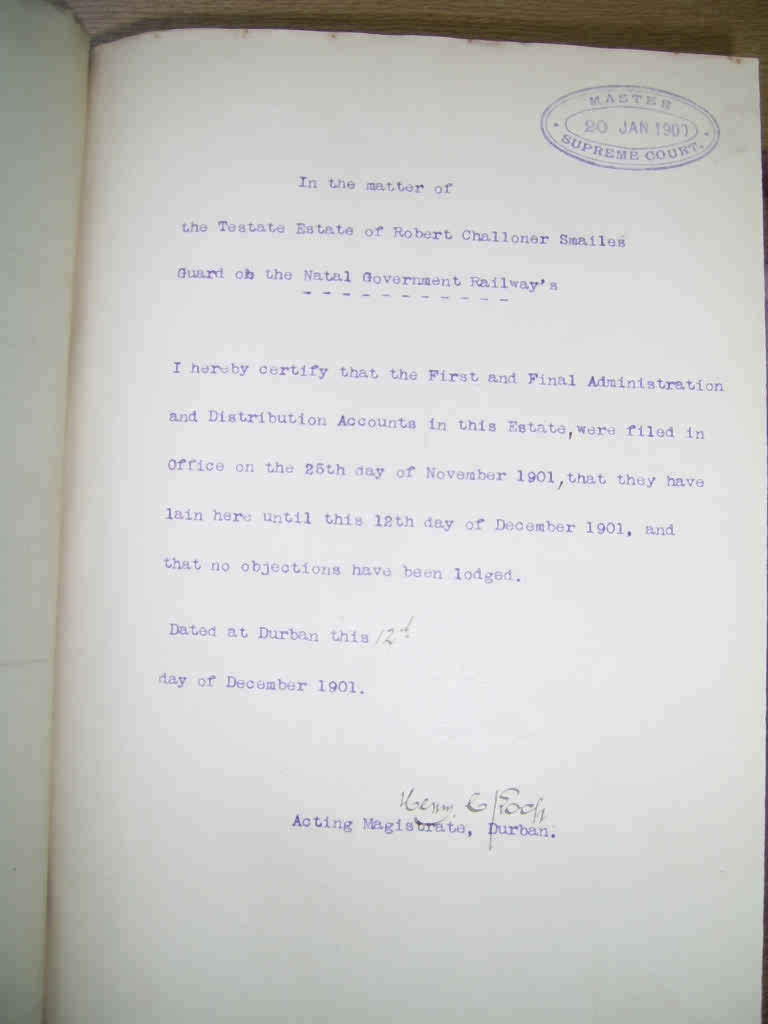 MASTER
20 JAN 190
SUPREME COURT.
In the matter of
the Testate Estate of Robert Challoner Smailes
Guard on the Natal Government Railway's
- - - - - - - - - - -
I hereby certify that the First and Final Administration
and Distribution Accounts in this Estate, were filed in
Office on the 25th day of November 1901, that they have
lain here until this 12th day of December 1901, and
that no objections have been lodged.
Dated at Durban this 12th
day of December 1901.
Henry C Koch
Acting Magistrate, Durban.